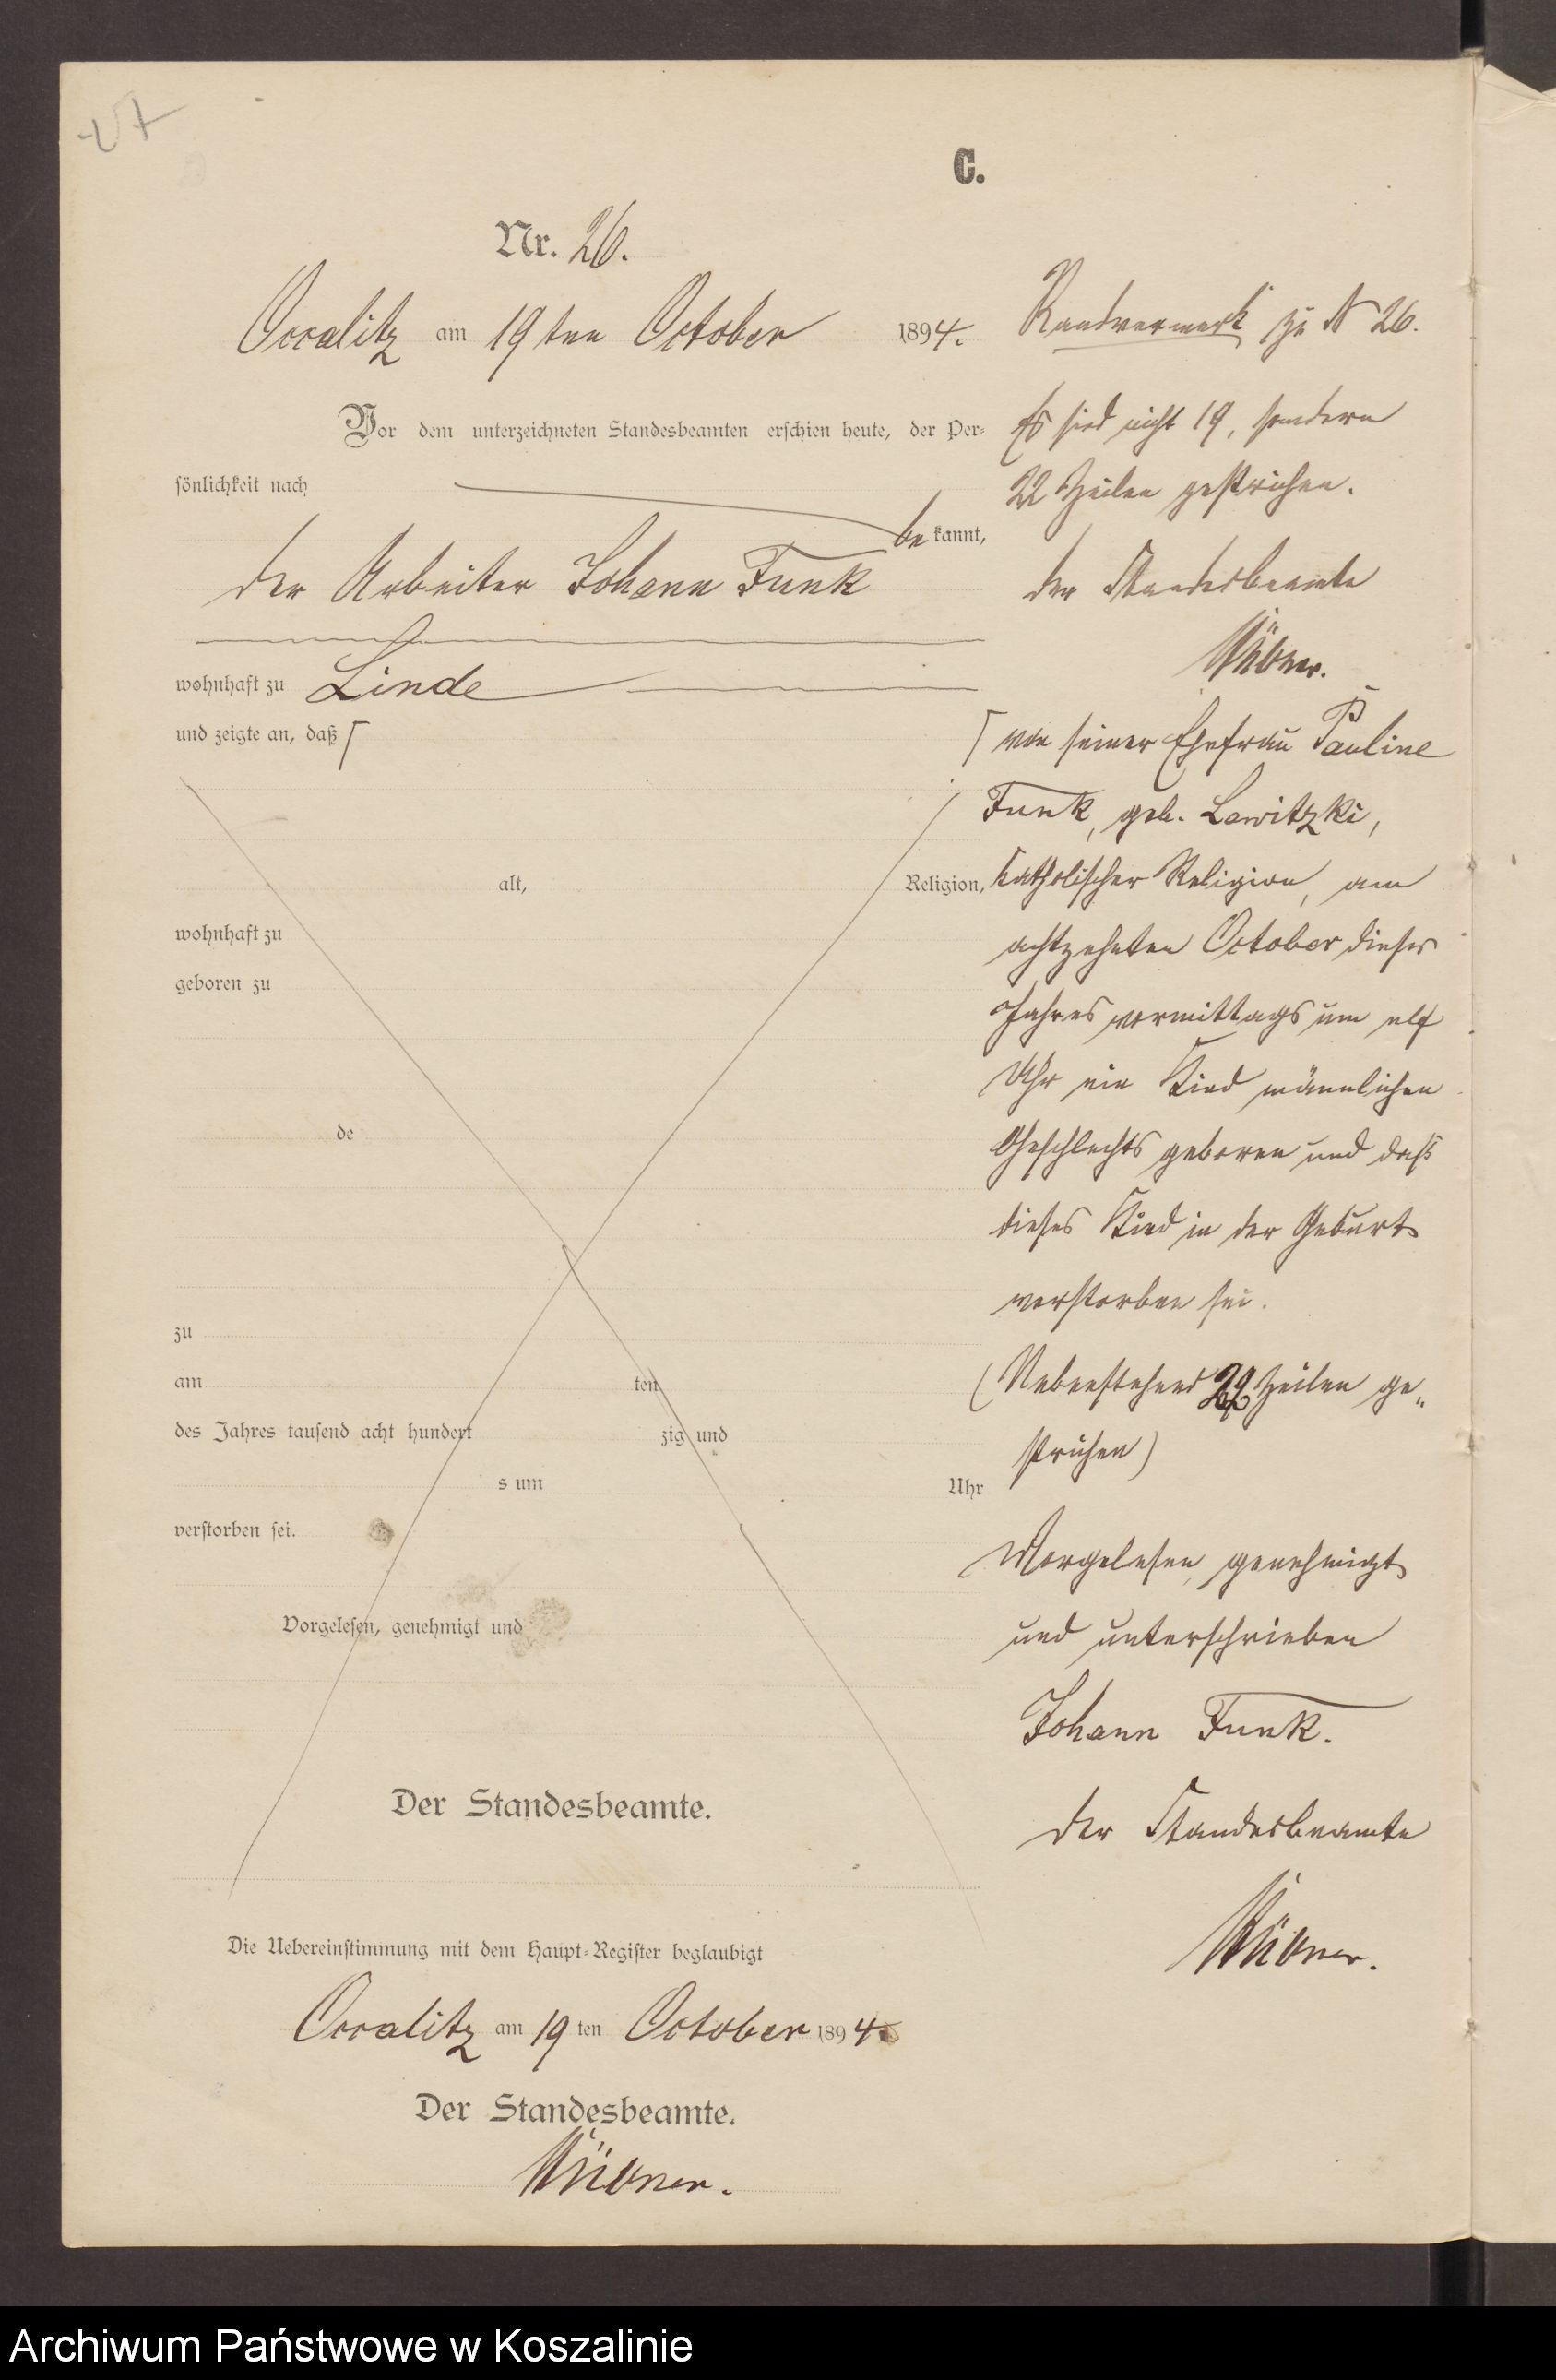 27
C.
Nr. 26.
Occalitz am 19 ten October 1894.
Vor dem unterzeichneten Standesbeamten erschien heute, der Per-
sönlichkeit nach
be kannt,
der Arbeiter Johann Funk
wohnhaft zu Linde
und zeigte an, daß ⌈
alt, Religion,
wohnhaft zu
geboren zu
de
zu
am ten
des Jahres tausend acht hundert zig und
s um Uhr
verstorben sei.
Vorgelesen, genehmigt und
Der Standesbeamte.
Die Uebereinstimmung mit dem Haupt-Register beglaubigt
Occalitz am 19 ten October 1894.
Der Standesbeamte.
Randvermerk zu N 26.
Es sind nicht 19, sondern
22 Zeilen gestrichen.
der Standesbeamte
⌈ von seiner Ehefrau Pauline
Funk, geb. Lawitzki,
katholischer Religion, am
achtzehnten October dieses
Jahres vormittags um elf
Uhr ein Kind männlichen
Geschlechts geboren und daß
dieses Kind in der Geburt
verstorben sei.
(Nebenstehend 22 Zeilen ge„
strichen)
Vorgelesen, genehmigt
und unterschrieben
Johann Funk.
Der Standesbeamte
Archiwum Państwowe w Koszalinie